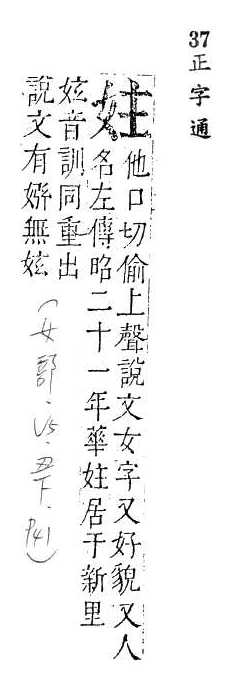 37正字通
妵他口切偷上聲說文女字又好貌又人
名左傳昭二十一年華妵居于新里
妶音訓同重出
說文有無妶
(女部.V5.丑下.P41)